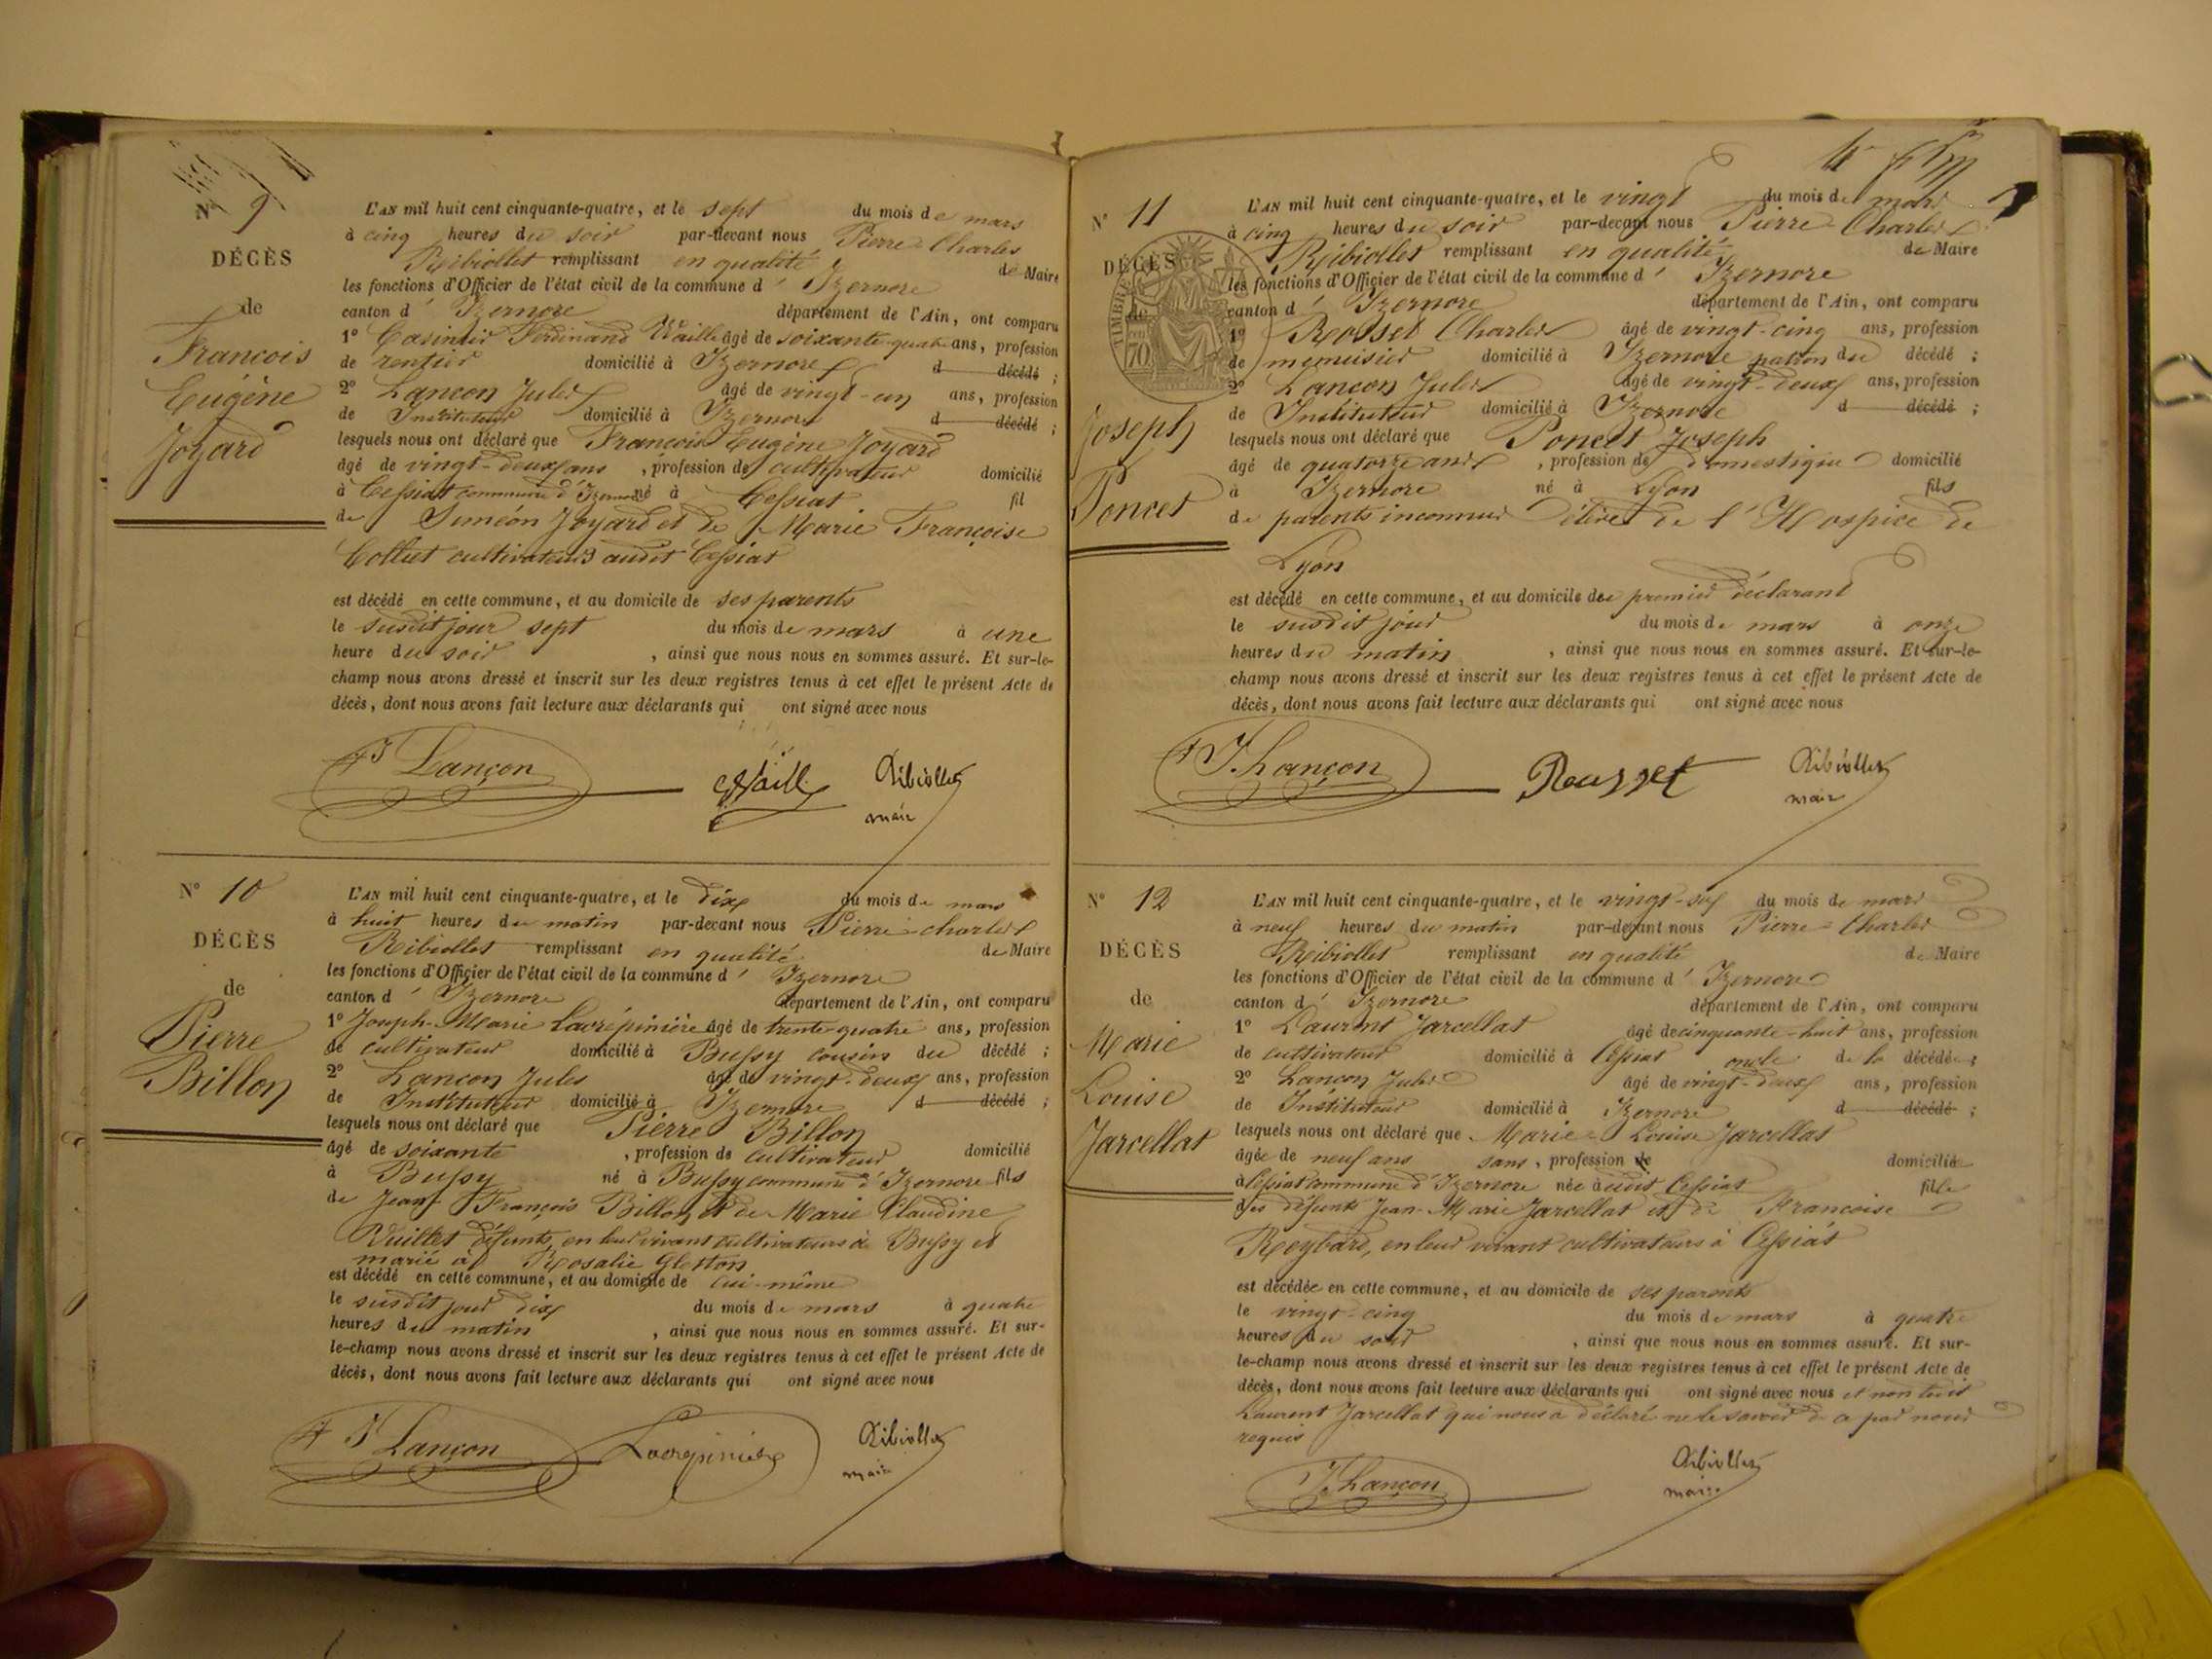 N° 9
DÉCÈS
de
François
Eugène
Joyard
L'AN mil huit cent cinquante-quatre, et le sept du mois de mars
à cinq heures du soir par-devant nous Pierre Charles
Ribiollet remplissant en qualité de Maire
les fonctions d'Officier de l'état civil de la commune d' Izernore
canton d' Izernore département de l'Ain, ont comparu
1° Casimir Ferdinand Waille âgé de soixante-quatre ans, profession
de rentier domicilié à Izernore d décédé ;
2° Lançon Jules âgé de vingt-un ans, profession
de Instituteur domicilié à Izernore d décédé ;
lesquels nous ont déclaré que François Eugène Joyard
âgé de vingt-deux ans , profession de cultivateur domicilié
à Cessiat commune d'Izernore né à Cessiat fil
de Siméon Joyard et de Marie Françoise
Collet cultivateurs audit Cessiat
est décédé en cette commune, et au domicile de ses parents
le susdit jour sept du mois de mars à une
heure du soir , ainsi que nous nous en sommes assuré. Et sur-le-
champ nous avons dressé et inscrit sur les deux registres tenus à cet effet le présent Acte de
décès, dont nous avons fait lecture aux déclarants qui ont signé avec nous
J Lançon Waille Ribiollet
maire
N° 10
DÉCÈS
de
Pierre
Billon
L'AN mil huit cent cinquante-quatre, et le dix du mois de mars
à huit heures du matin par-devant nous Pierre-Charles
Ribiollet remplissant en qualité de Maire
les fonctions d'Officier de l'état civil de la commune d' Izernore
canton d' Izernore département de l'Ain, ont comparu
1° Joseph-Marie Lacrépinière âgé de trente-quatre ans, profession
de cultivateur domicilié à Bussy cousin du décédé ;
2° Lançon Jules âgé de vingt-deux ans, profession
de Instituteur domicilié à Izernore d décédé ;
lesquels nous ont déclaré que Pierre Billon
âgé de soixante , profession de cultivateur domicilié
à Bussy né à Bussy commune d'Izernore fils
de Jean François Billon et de Marie Claudine
Vuillet défunts, en leur vivant cultivateurs à Bussy et
marié à Rosalie Gletton
est décédé en cette commune, et au domicile de lui-même
le susdit jour dix du mois de mars à quatre
heures du matin , ainsi que nous nous en sommes assuré. Et sur-
le-champ nous avons dressé et inscrit sur les deux registres tenus à cet effet le présent Acte de
décès, dont nous avons fait lecture aux déclarants qui ont signé avec nous
J Lançon Lacrepiniere Ribiollet
maire
N° 11
DÉCÈS
de
Joseph
Poncet
TIMBRE
70
L'AN mil huit cent cinquante-quatre, et le vingt du mois de mars
à cinq heures du soir par-devant nous Pierre Charles
Ribiollet remplissant en qualité de Maire
les fonctions d'Officier de l'état civil de la commune d' Izernore
canton d' Izernore département de l'Ain, ont comparu
1° Rosset Charles âgé de vingt-cinq ans, profession
de menuisier domicilié à Izernore patron du décédé ;
2° Lançon Jules âgé de vingt-deux ans, profession
de Instituteur domicilié à Izernore d décédé ;
lesquels nous ont déclaré que Poncet Joseph
âgé de quatorze ans , profession de domestique domicilié
à Izernore né à Lyon fils
de parents inconnus élève de l'Hospice de
Lyon
est décédé en cette commune, et au domicile de premier déclarant
le susdit jour du mois de mars à onze
heures du matin , ainsi que nous nous en sommes assuré. Et sur-le-
champ nous avons dressé et inscrit sur les deux registres tenus à cet effet le présent Acte de
décès, dont nous avons fait lecture aux déclarants qui ont signé avec nous
J. Lançon Rousset Ribiollet
maire
N° 12
DÉCÈS
de
Marie
Louise
Jarcellat
L'AN mil huit cent cinquante-quatre, et le vingt-six du mois de mars
à neuf heures du matin par-devant nous Pierre-Charles
Ribiollet remplissant en qualité de Maire
les fonctions d'Officier de l'état civil de la commune d' Izernore
canton d' Izernore département de l'Ain, ont comparu
1° Laurent Jarcellat âgé de cinquante-huit ans, profession
de cultivateur domicilié à Cessiat oncle de la décédée ;
2° Lançon Jules âgé de vingt-deux ans, profession
de Instituteur domicilié à Izernore d décédé ;
lesquels nous ont déclaré que Marie Louise Jarcellat
âgée de neuf ans sans , profession de domiciliée
à Cessiat commune d'Izernore née audit Cessiat fille
des défunts Jean-Marie Jarcellat et de Francoise
Reybard, en leur vivant cultivateurs à Cessiat
est décédée en cette commune, et au domicile de ses parents
le vingt-cinq du mois de mars à quatre
heures du soir , ainsi que nous nous en sommes assuré. Et sur-
le-champ nous avons dressé et inscrit sur les deux registres tenus à cet effet le présent Acte de
décès, dont nous avons fait lecture aux déclarants qui ont signé avec nous et non ledit
Laurent Jarcellat qui nous a déclaré ne le savoir de ce par nous
requis
J. Lançon Ribiollet
maire